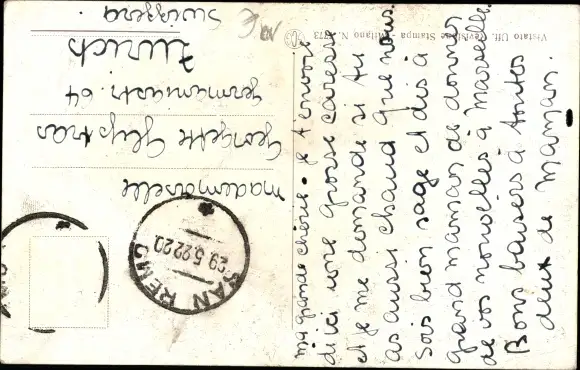 Visitato Uff. Revisione Stampa - Milano N. 173
Ma grande chérie - je t'envoie
d'ici une grosse caresse
et je me demande si tu
as aussi chaud que nous.
Sois bien sage et dis à
grand maman de donner
de vos nouvelles à Marseille.
Bons baisers à toutes
deux de Maman.
SAN REMO
29.5.22 20
Mademoiselle
Georgette
germaniastr. 64
Zurich
Svizzera